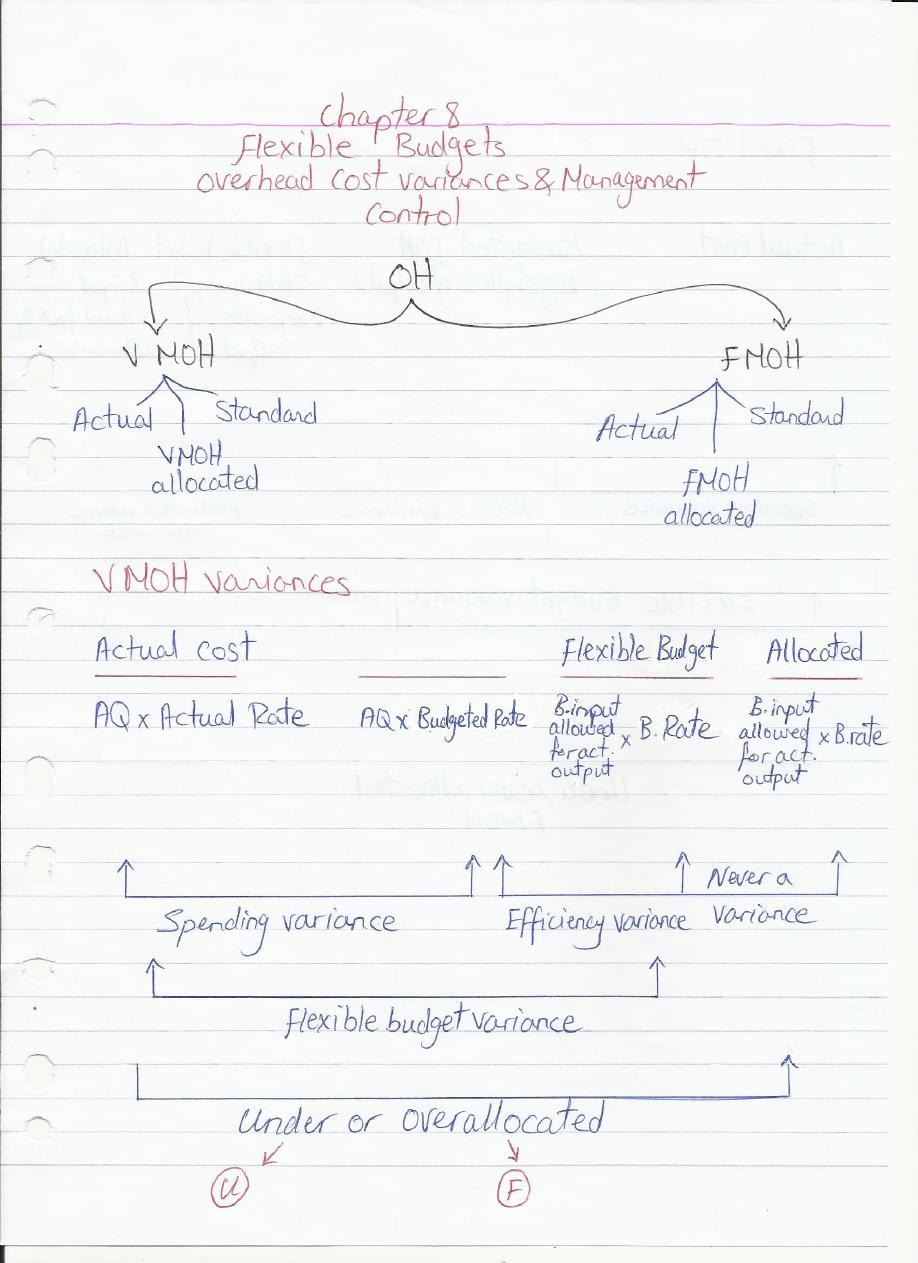 Chapter 8
Flexible Budgets
Overhead Cost Variances & Management
Control
OH
VMOH
FMOH
Actual
Standard
VMOH
allocated
Actual
Standard
FMOH
allocated
VMOH Variances
Actual Cost
Flexible Budget
Allocated
AQ x Actual Rate
AQ x Budgeted Rate
B.input
allowed
for act.
output
x B. Rate
B. input
allowed
for act.
output
x B.rate
Spending variance
Efficiency variance
Never a
variance
Flexible budget variance
Under or overallocated
U
F